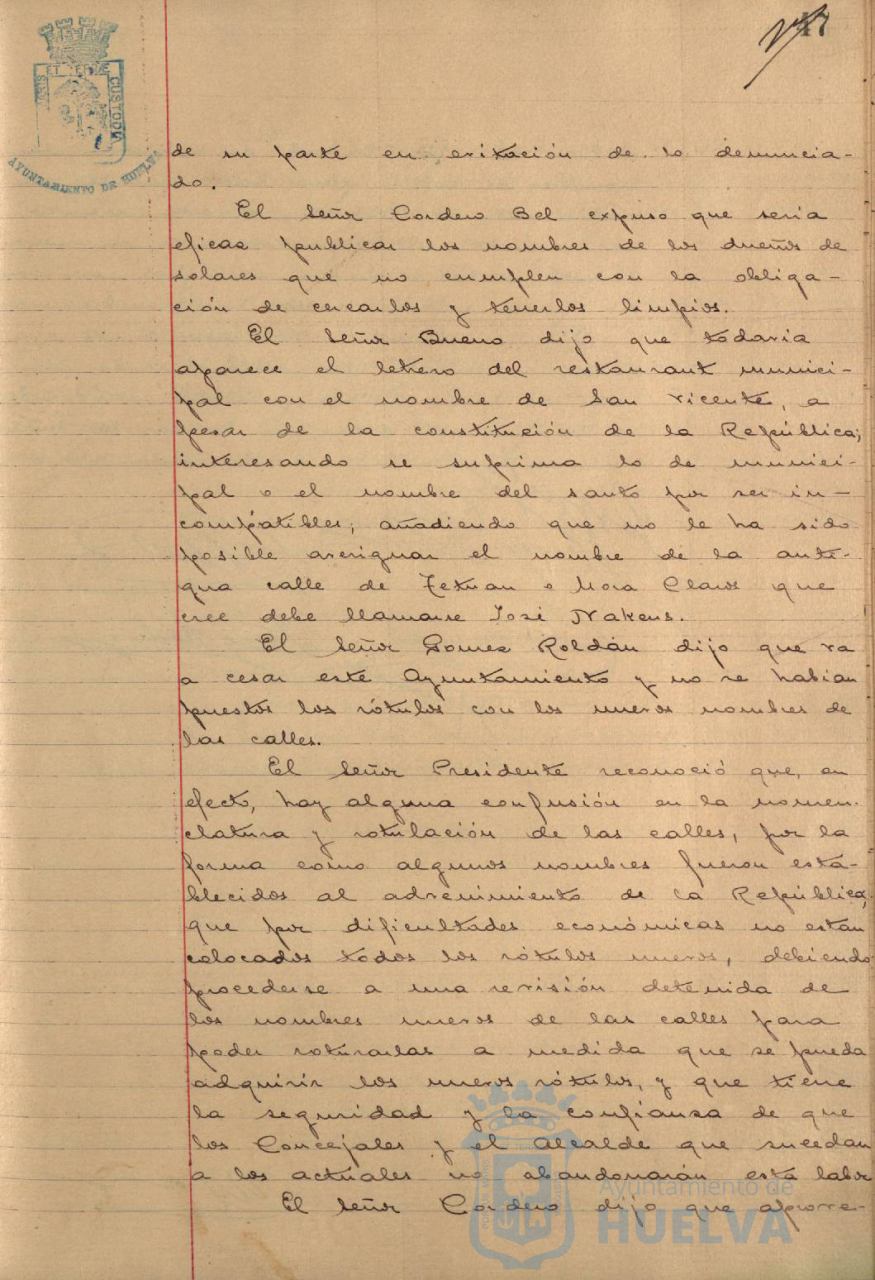 47
SEDIS ET TERRAE CUSTODIA
AYUNTAMIENTO DE HUELVA
de su parte en evitación de lo denuncia-
do.
El Señor Cordero Bel expuso que seria
eficaz publicar los nombres de los dueños de
solares que no cumplen con la obliga-
ción de cercarlos y tenerlos limpios.
El Señor Bueno dijo que todavia
aparece el letrero del restaurant munici-
pal con el nombre de San Vicente, a
pesar de la constitución de la República;
interesando se suprima lo de munici-
pal o el nombre del santo por ser in-
compatibles; añadiendo que no le ha sido
posible averiguar el nombre de la anti-
gua calle de Tetuan o Mora Claros que
cree debe llamarse José Nakens.
El Señor Gomez Roldán dijo que va
a cesar este Ayuntamiento y no se habian
puestos los rótulos con los nuevos nombres de
las calles.
El Señor Presidente reconoció que, en
efecto, hay alguna confusión en la nomen-
clatura y rotulación de las calles, por la
forma como algunos nombres fueron esta-
blecidos al advenimiento de la República,
que por dificultades económicas no estan
colocados todos los rótulos nuevos, debiendo
procederse a una revisión detenida de
los nombres nuevos de las calles para
poder roturarlas a medida que se pueda
adquirir los nuevos rótulos, y que tiene
la seguridad y la confianza de que
los Concejales y el Alcalde que sucedan
a los actuales no abandonarán esta labor
El Señor Cordero dijo que aprove-
Ayuntamiento de
HUELVA